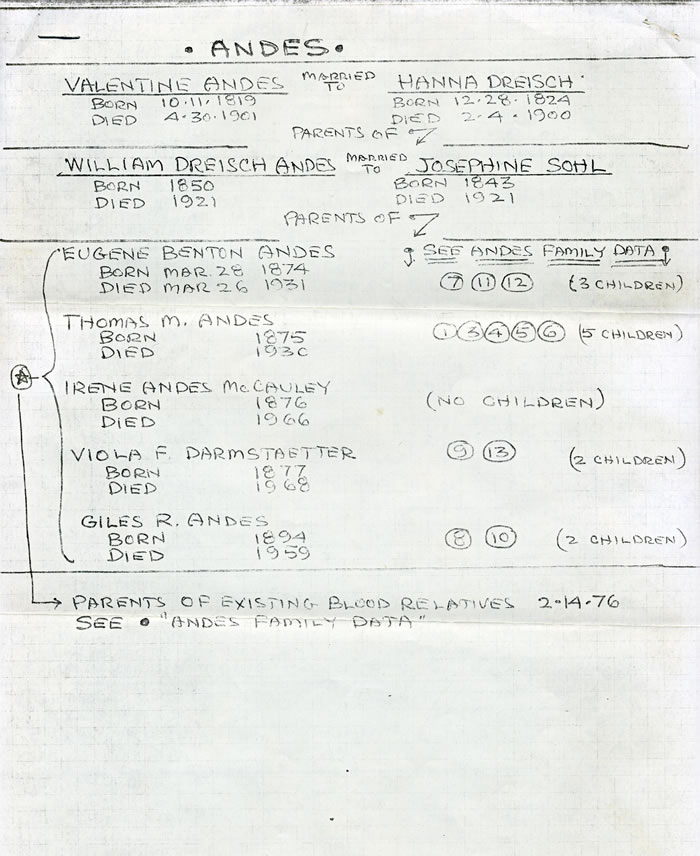 • ANDES •
VALENTINE ANDES MARRIED TO HANNA DREISCH
BORN 10-11-1819 BORN 12-28-1824
DIED 4-30-1901 DIED 2-4-1900
PARENTS OF
WILLIAM DREISCH ANDES MARRIED TO JOSEPHINE SOHL
BORN 1850 BORN 1843
DIED 1921 DIED 1921
PARENTS OF
EUGENE BENTON ANDES SEE ANDES FAMILY DATA
BORN MAR. 28 1874
DIED MAR 26 1931 7 11 12 (3 CHILDREN)
THOMAS M. ANDES
BORN 1875 1 3 4 5 6 (5 CHILDREN)
DIED 1930
IRENE ANDES McCAULEY
BORN 1876 (NO CHILDREN)
DIED 1966
VIOLA F. DARMSTAETTER 9 13 (2 CHILDREN)
BORN 1877
DIED 1968
GILES R. ANDES
BORN 1894 8 10 (2 CHILDREN)
DIED 1959
PARENTS OF EXISTING BLOOD RELATIVES 2-14-76
SEE • "ANDES FAMILY DATA"